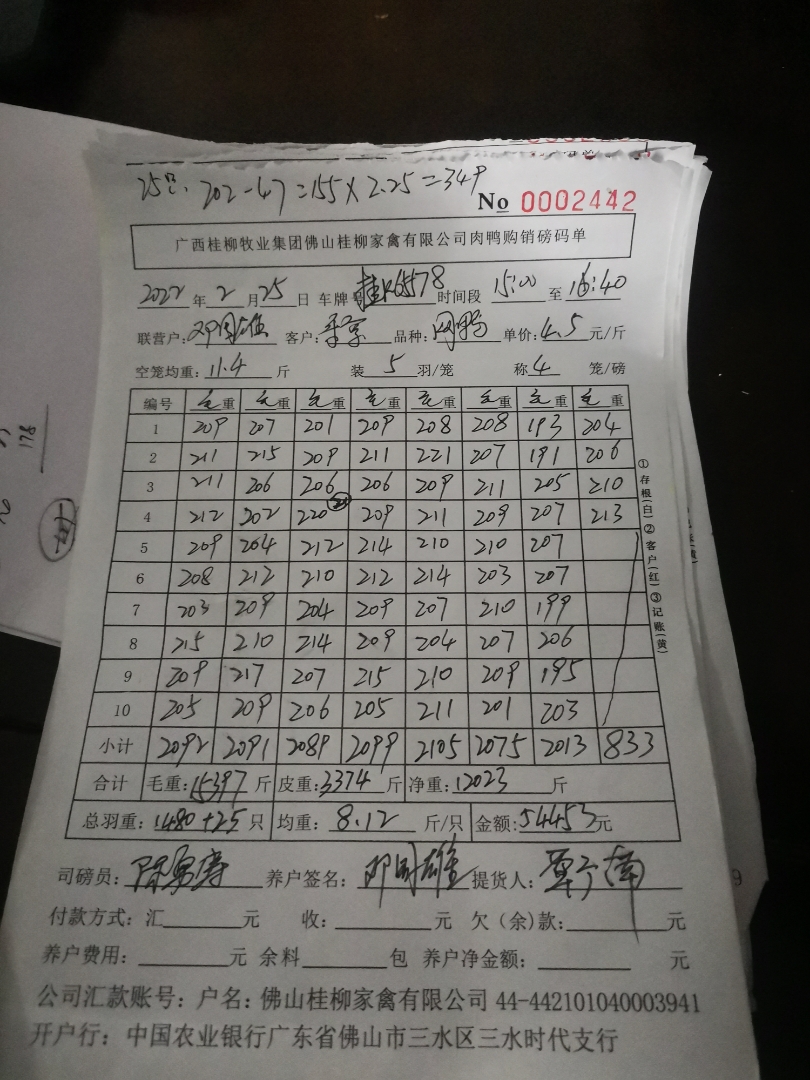 25只: 202-47=155×2.25=349
No 0002442
广西桂柳牧业集团佛山桂柳家禽有限公司肉鸭购销磅码单
2022年2月25日 车牌号 桂K65578 时间段 15:00 至 16:40
联营户: 邓国雄 客户: 品种: 肉鸭 单价: 4.5 元/斤
空笼均重: 11.4 斤 装 5 羽/笼 称 4 笼/磅
编号 毛重 毛重 毛重 毛重 毛重 毛重 毛重 毛重
1 209 207 201 209 208 208 193 204
2 211 215 209 211 221 207 191 206
3 211 206 206 206 209 211 205 210
4 212 202 220 209 211 209 207 213
5 209 204 212 214 210 210 207
6 208 212 210 212 214 203 207
7 203 209 204 209 207 210 199
8 215 210 214 209 204 207 206
9 209 217 207 215 210 209 195
10 205 209 206 205 211 201 203
小计 2092 2091 2089 2099 2105 2075 2013 833
合计 毛重: 15397 斤 皮重: 3374 斤 净重: 12023 斤
总羽重: 1480+25 只 均重: 8.12 斤/只 金额: 54453 元
司磅员: 养户签名: 邓国雄 提货人:
付款方式: 汇 元 收: 元 欠(余)款: 元
养户费用: 元 余料 包 养户净金额: 元
公司汇款账号: 户名: 佛山桂柳家禽有限公司 44-442101040003941
开户行: 中国农业银行广东省佛山市三水区三水时代支行
①存根(白)②客户(红)③记账(黄)
178